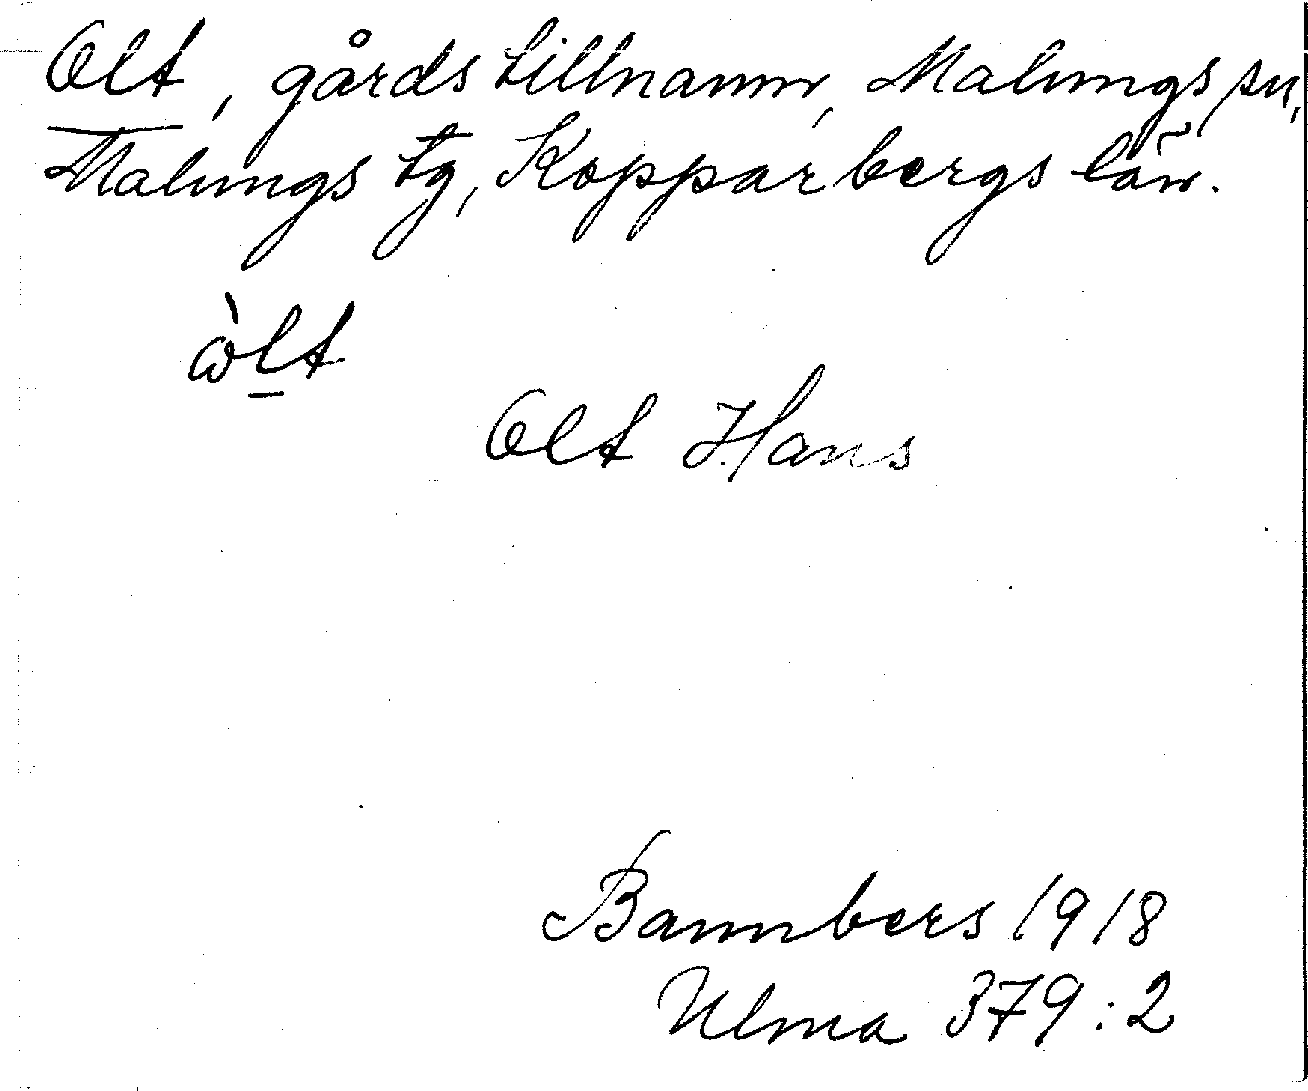 Olt, gårdstillnamn, Malungs sn,
Malungs tg, Kopparbergs län.
ὼl̲t
Olt Hans
Bannbers 1918
Ulma 379:2